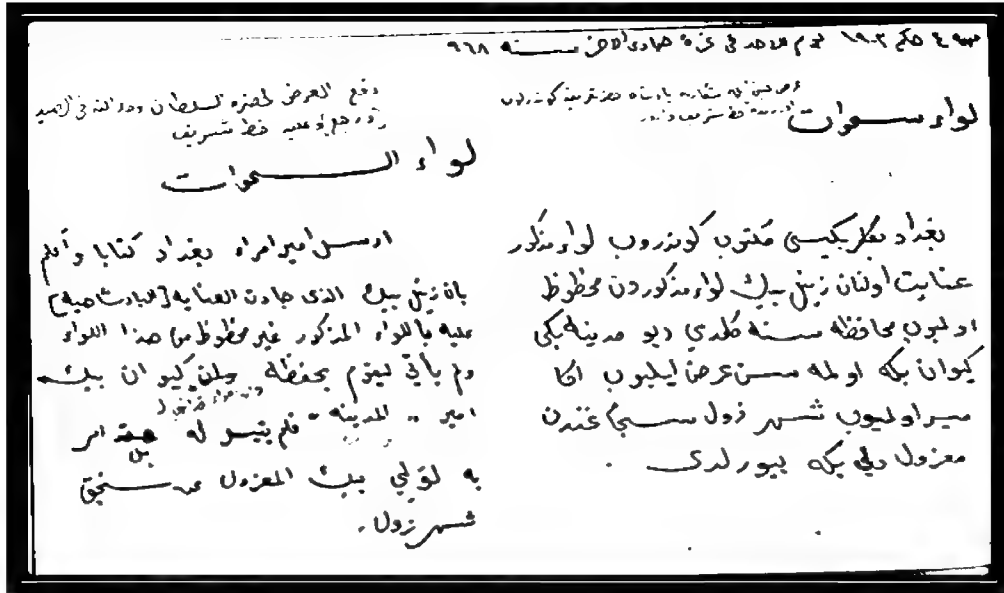 مهمه ٤ حكم ١٩٠٢ يوم الاحد في غرة جمادى الاخر سنه ٩٦٨
لواء سموات
بغداد بكلربكيسى مكتوب كوندروب لواء مذكور
عنايت اولنان زينل بيك لواء مذكوردن محظوظ
اولميوب محافظه سنه كلمدي ديو مدينه بكى
كيوان بكه اولمه سن عرض ايليوب اكا
ميسر اولميوب شهر زول سنجاغندن
معزول ولي بكه بيورلدى .
رفع العرض لحضرة السلطان
ورجع و عليه خط شريف
لواء السموات
ارسل امير امراء بغداد كتابا وأعلم
بان زينل بيك الذى جادت العناية [البادشاهية]
عليه باللواء المذكور غير محظوظ من هذا اللواء
ولم يأتي ليقوم بحفظه كيوان بيك
امير المدينة فلم يتيسر له بل امر
به لولي بيك المعزول عن سنجق
شهر زول .